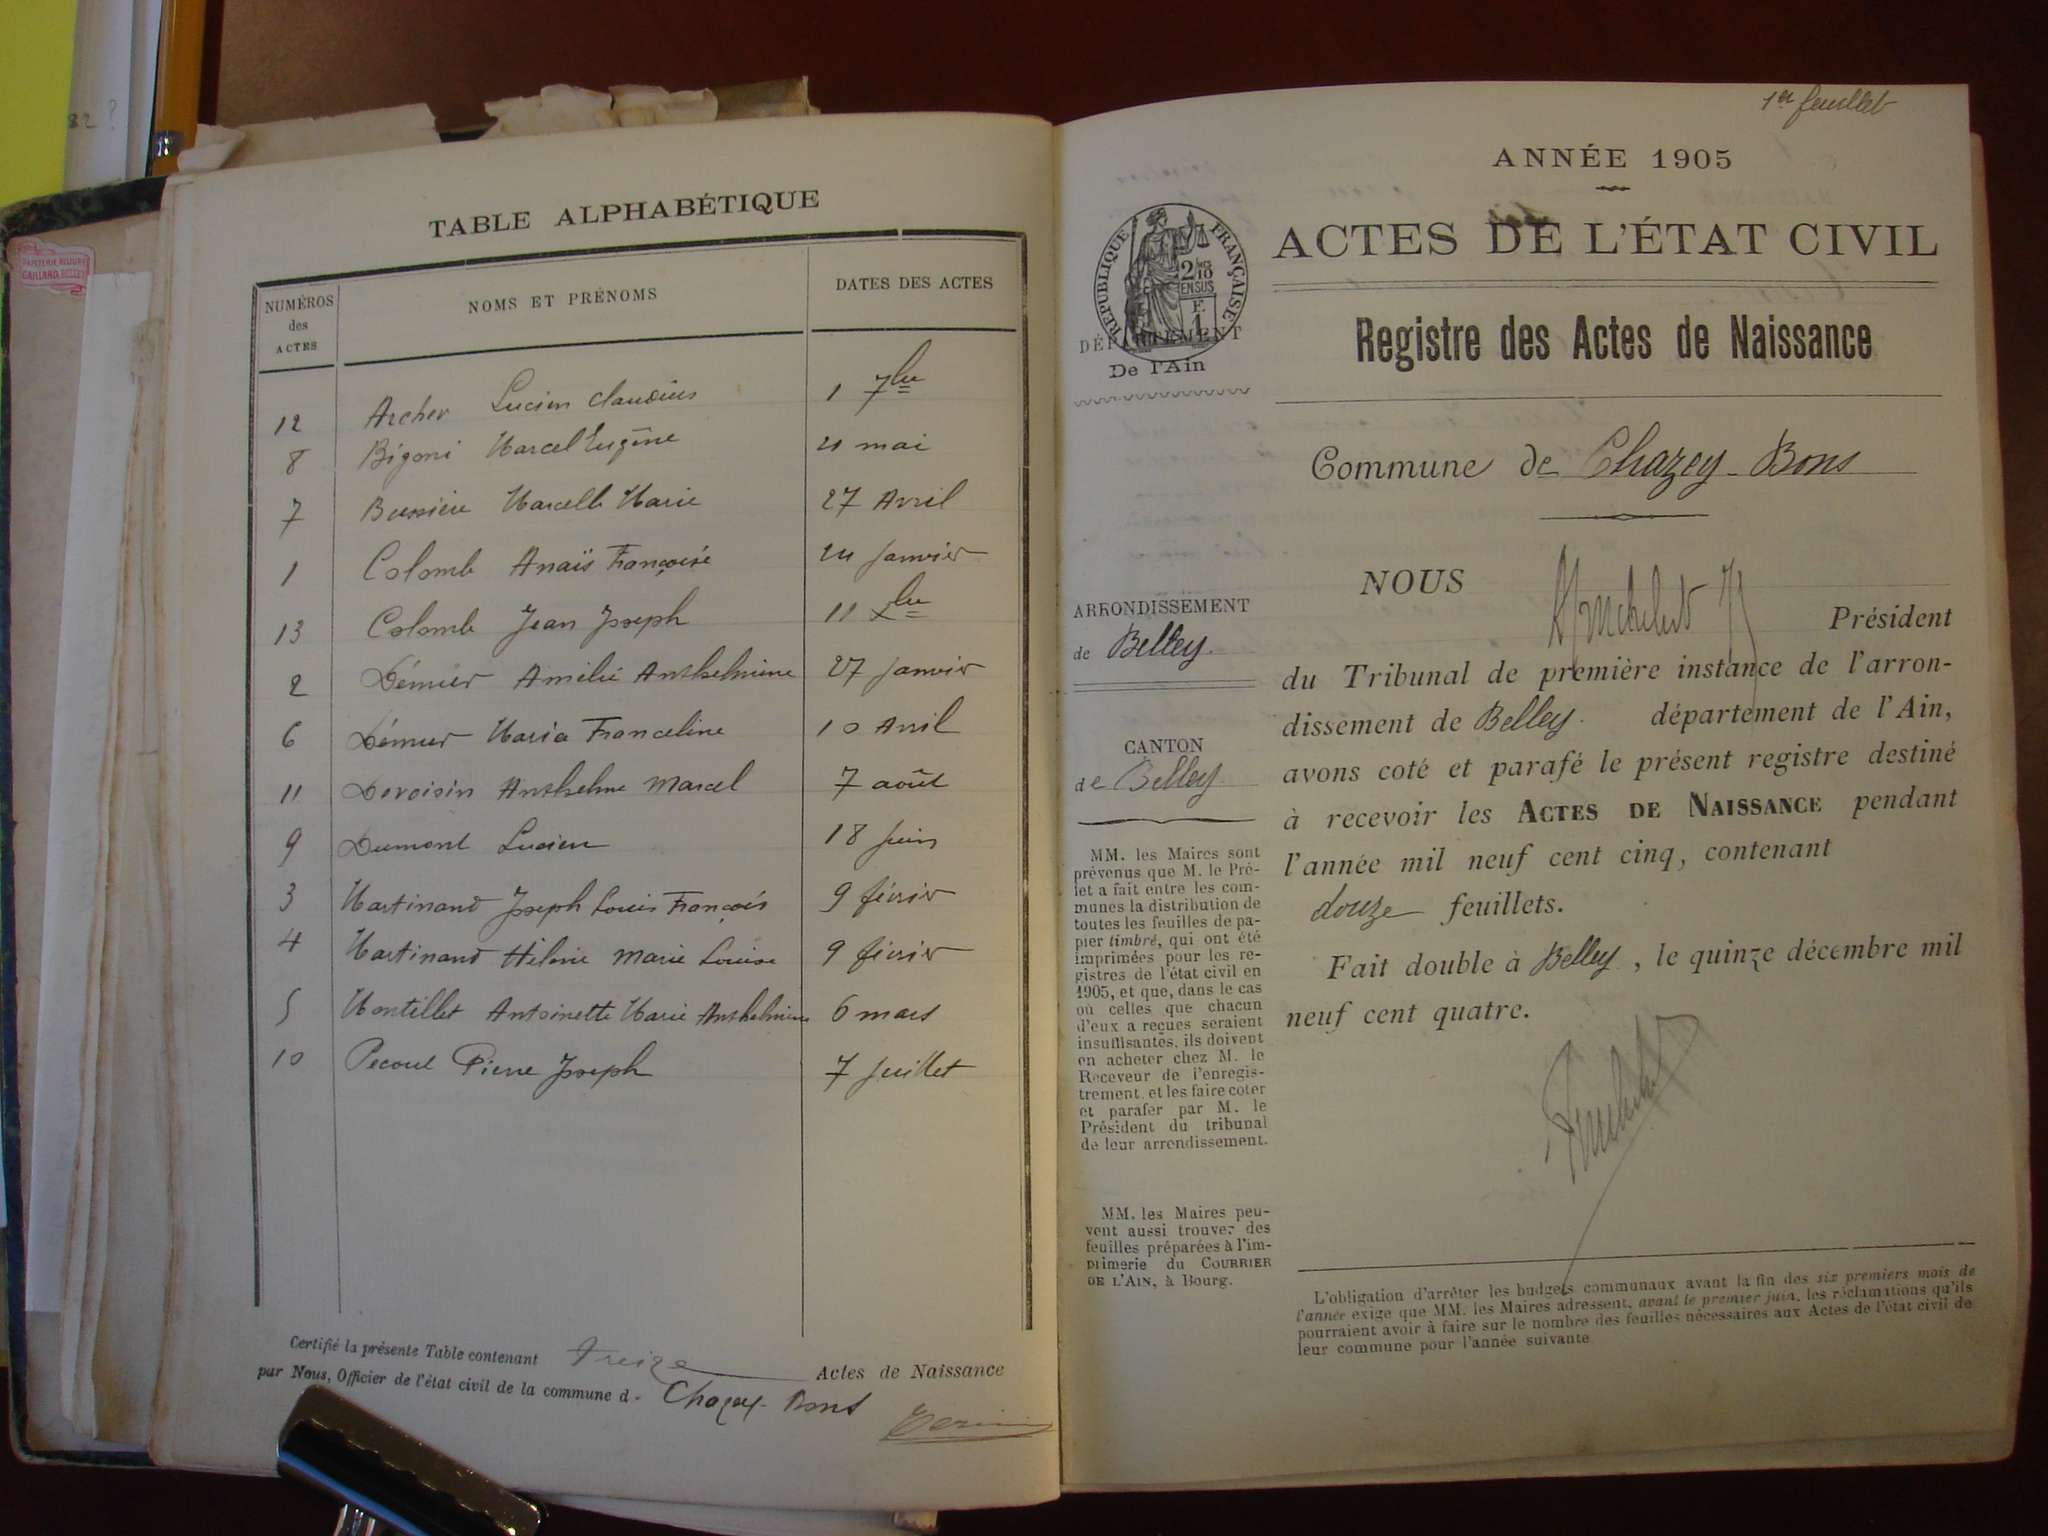 82 ?
PAPETERIE RELIURE
GAILLAND, BELLEY
TABLE ALPHABÉTIQUE
NUMÉROS des ACTES NOMS ET PRÉNOMS DATES DES ACTES
12 Archer Lucien Claudius 1 7bre
8 Bigoni Marcel Eugène 21 mai
7 Bussière Marcelle Marie 27 Avril
1 Colomb Anaïs Françoise 24 Janvier
13 Colomb Jean Joseph 11 Xbre
2 Démier Amélie Anthelmine 27 Janvier
6 Démier Maria Franceline 10 Avril
11 Devoisin Anthelme Marcel 7 août
9 Dumont Lucien 18 Juin
3 Martinand Joseph Louis François 9 février
4 Martinand Hélène Marie Louise 9 février
5 Montillet Antoinette Marie Anthelmine 6 mars
10 Pecoul Pierre Joseph 7 Juillet
Certifié la présente Table contenant Treize Actes de Naissance
par Nous, Officier de l'état civil de la commune d Chazey-Bons
1er feuillet
ANNÉE 1905
ACTES DE L'ÉTAT CIVIL
RÉPUBLIQUE FRANÇAISE
2/10 EN SUS
F. 1
DÉPARTEMENT
De l'Ain
Registre des Actes de Naissance
Commune de Chazey-Bons
ARRONDISSEMENT
de Belley.
CANTON
de Belley
MM. les Maires sont
prévenus que M. le Pré-
fet a fait entre les com-
munes la distribution de
toutes les feuilles de pa-
pier timbré, qui ont été
imprimées pour les re-
gistres de l'état civil en
1905, et que, dans le cas
où celles que chacun
d'eux a reçues seraient
insuffisantes, ils doivent
en acheter chez M. le
Receveur de l'enregis-
trement, et les faire coter
et parafer par M. le
Président du tribunal
de leur arrondissement.
MM. les Maires peu-
vent aussi trouver des
feuilles préparées à l'im-
primerie du COURRIER
DE L'AIN, à Bourg.
NOUS Président
du Tribunal de première instance de l'arron-
dissement de Belley. département de l'Ain,
avons coté et parafé le présent registre destiné
à recevoir les ACTES DE NAISSANCE pendant
l'année mil neuf cent cinq, contenant
douze feuillets.
Fait double à Belley, le quinze décembre mil
neuf cent quatre.
L'obligation d'arrêter les budgets communaux avant la fin des six premiers mois de
l'année exige que MM. les Maires adressent, avant le premier juin, les réclamations qu'ils
pourraient avoir à faire sur le nombre des feuilles nécessaires aux Actes de l'état civil de
leur commune pour l'année suivante